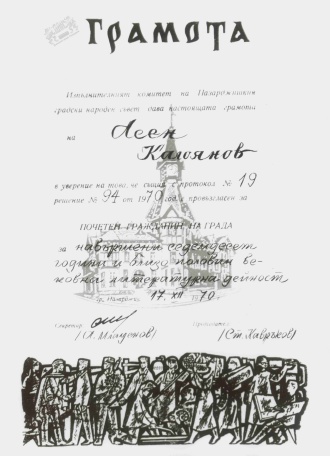 Грамота
Изпълнителният комитет на Пазарджишкия
градски народен съвет дава настоящата грамота
на Асен
Калоянов
в уверение на това, че същия с протокол № 19
решение № 94 от 1970 год. е провъзгласен за
ПОЧЕТЕН ГРАЖДАНИН НА ГРАДА
за навършени седемдесет
години и близо половин ве-
ковна литературна дейност
гр. Пазарджик 17. XII 70
Секретар: Председател:
/А. Младенов/ /Ст. Хаврьков/